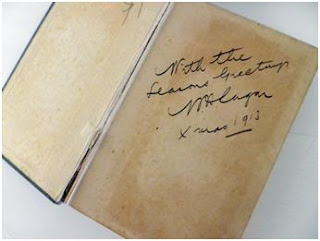 71
With the
Seasons Greetings
Xmas 1913